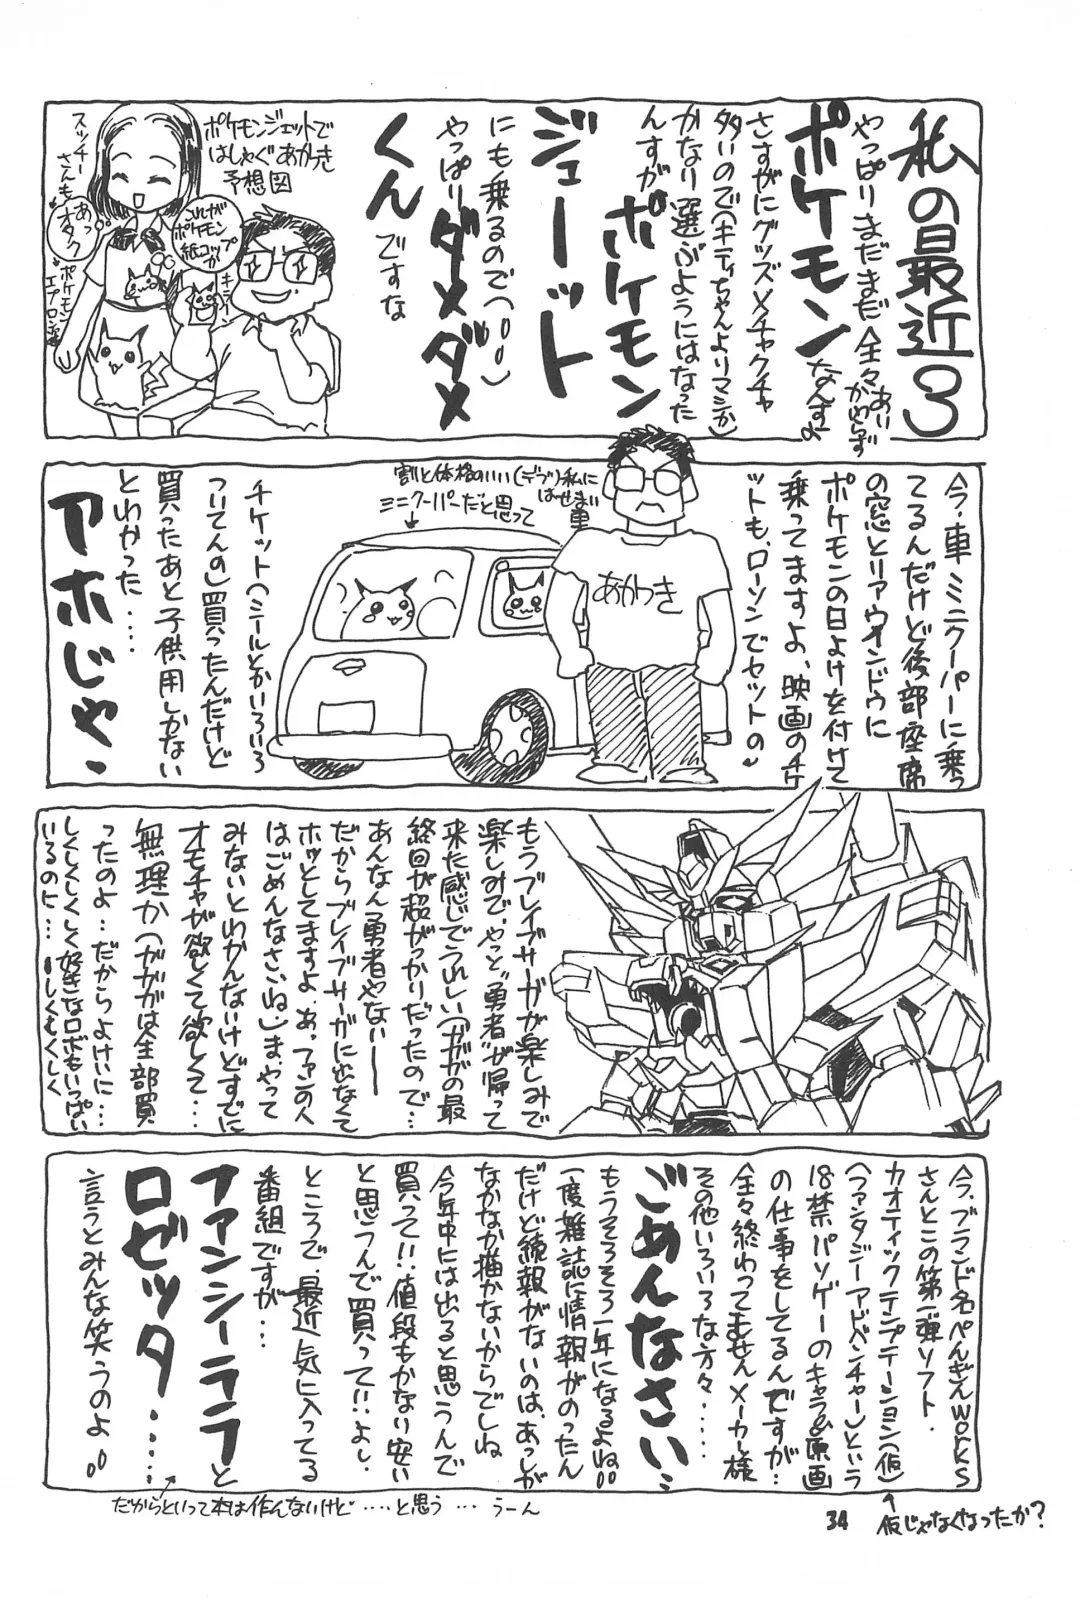 私の最近3
やっぱりまだまだ全々
あいかわらず
ポケモンなんすよ
さすがにグッズメチャクチャ
多いので(キティちゃんよりマシか)
かなり選ぶようにはなった
んすが ポケモン
ジェット
にも乗るので(^^)
やっぱり ダメダメ
くん ですな
ポケモンジェットで
はしゃぐあかつき
予想図
これが
ポケモン
紙コップか
キラーン
スッチー
さんも
あっ
オタク
ポケモン
エプロン姿
今、車ミニクーパーに乗っ
てるんだけど後部座席
の窓とリアウインドウに
ポケモンの日よけを付けて
乗ってますよ、映画のチケ
ットも、ローソンでセットの〜
割と体格のいい(デブ)私に
はせまい
車
ミニクーパーだと思って
あかつき
チケット(シールとかいろいろ
ついてんの)買ったんだけど
買ったあと子供用しかない
とわかった・・・・
アホじゃ・
もうブレイブサーガが楽しみで
楽しみで、やっと“勇者”が帰って
来た感じでうれしい(ガガガの最
終回が超がっかりだったので…
あんなん勇者やない――
だからブレイブサーガに出なくて
ホッとしてますよ、あっ、ファンの人
はごめんなさいね)ま、やって
みないとわかんないけどすでに
オモチャが欲しくて欲しくて…
無理か(ガガガは全部買
ったのよ…だからよけいに…
しくしくしくしく好きなロボもいっぱい
いるのに…しくしくしく
今、ブランド名ぺんぎんWORKS
さんとこの第一弾ソフト、
カオティックテンプテーション(仮)
(ファンタジーアドベンチャー)という
18禁パソゲーのキャラ&原画
の仕事をしてるんですが…
全々終わってませんメーカー様
その他いろいろな方々・・・・・
ごめんなさい…
もうそろそろ一年になるよね
一度雑誌に情報がのったん
だけど続報がないのは、あっしが
なかなか描かないからでしね
今年中には出ると思うんで
買って!!値段もかなり安い
と思うんで買って!!よし、
ところで、最近気に入ってる
番組ですが…
ファンシーララと
ロゼッタ……
言うとみんな笑うのよ
だからといって本は作んないけど ・・・・と思う … うーん
34
仮じゃなくなったか?